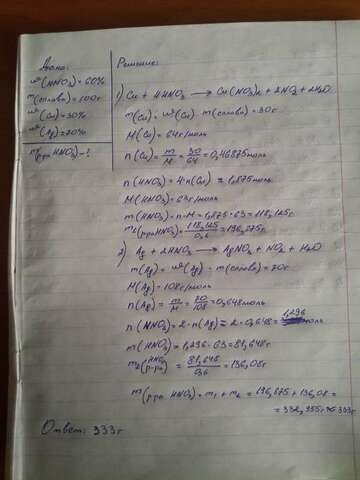 Дано:
w(HNO3) = 60%
m(сплава) = 100г
w(Cu) = 30%
w(Ag) = 70%
m(р-ра HNO3) - ?
Решение:
1) Cu + 4HNO3 → Cu(NO3)2 + 2NO2 + 2H2O
m(Cu) = w(Cu) · m(сплава) = 30г
M(Cu) = 64г/моль
n(Cu) = m/M = 30/64 = 0,46875моль
n(HNO3) = 4·n(Cu) = 1,875моль
M(HNO3) = 63г/моль
m(HNO3) = n·M = 1,875·63 = 118,125г
m1(р-ра HNO3) = 118,125/0,6 = 196,875г
2) Ag + 2HNO3 → AgNO3 + NO2 + H2O
m(Ag) = w(Ag) · m(сплава) = 70г
M(Ag) = 108г/моль
n(Ag) = m/M = 70/108 = 0,648моль
n(HNO3) = 2·n(Ag) = 2·0,648 = 1,296 моль
m(HNO3) = 1,296·63 = 81,648г
m2(HNO3 р-ра) = 81,648/0,6 = 136,08г
m(р-ра HNO3) = m1 + m2 = 196,875 + 136,08 =
= 332,955г ≈ 333г
Ответ: 333г